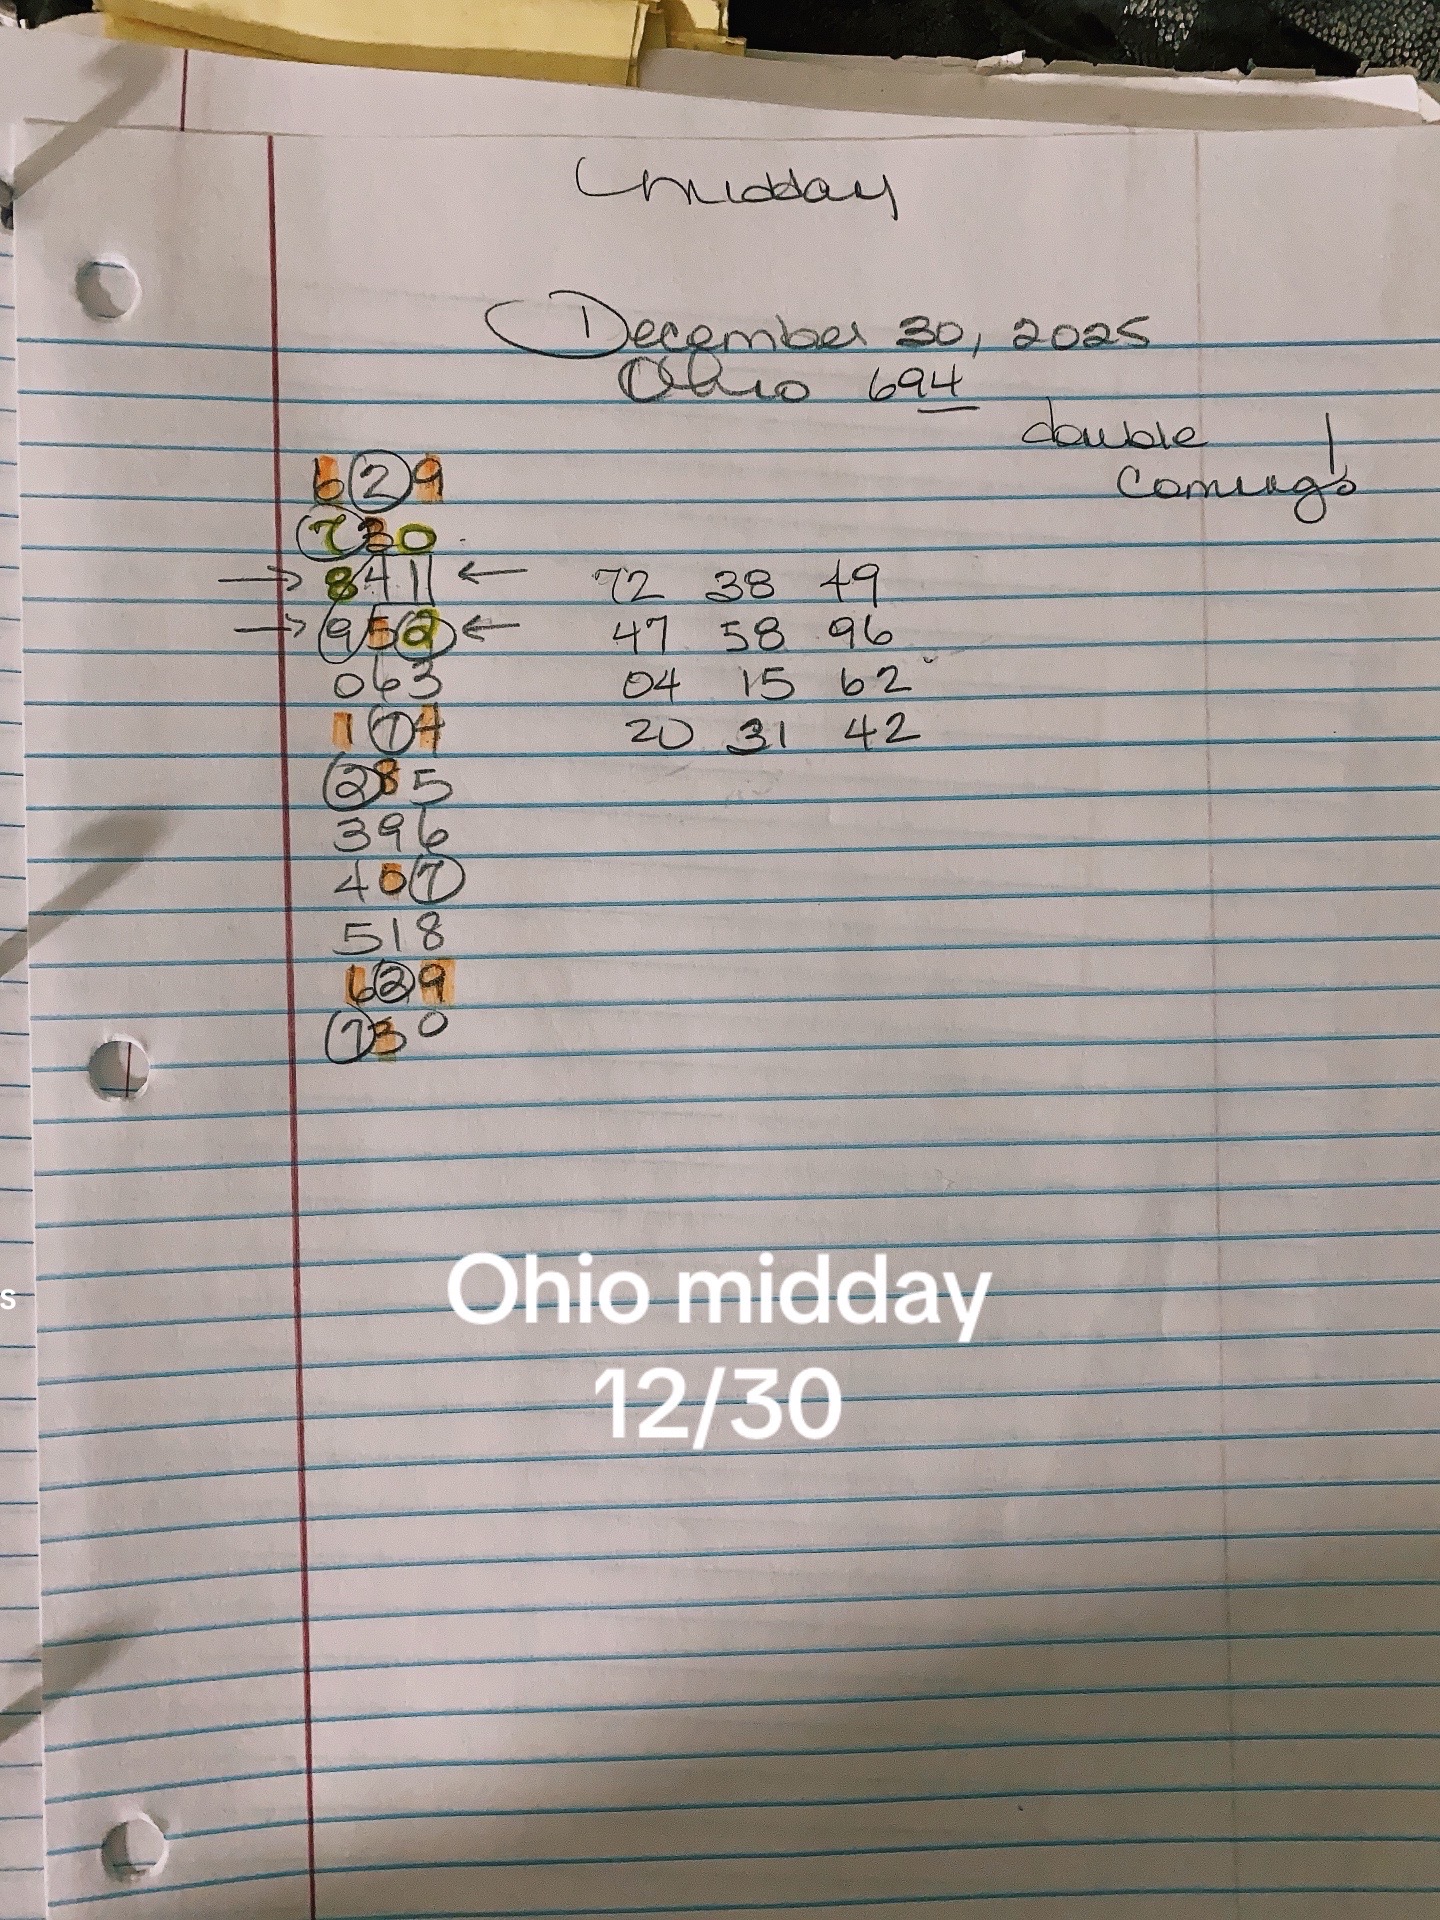 midday
December 30, 2025
Ohio 694
double
coming's
629
730
→ 841 ← 72 38 49
→ 952 ← 47 58 96
063 04 15 62
174 20 31 42
285
396
407
518
629
730
Ohio midday
12/30
s